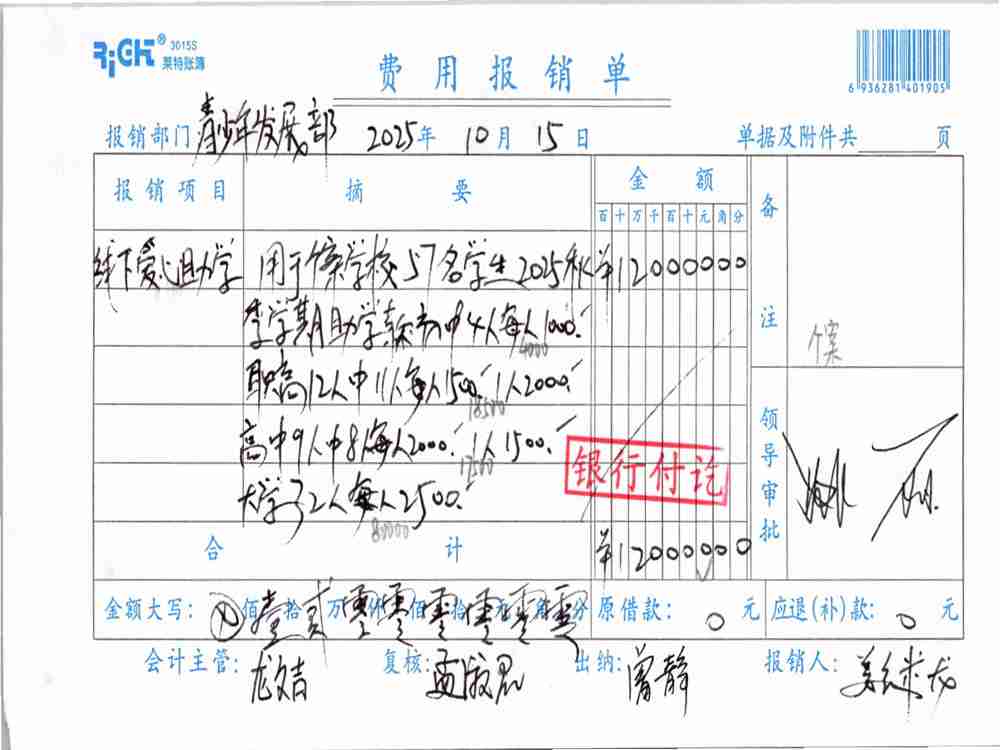 RiCH® 3015S
莱特账簿
费用报销单
6 936281 401905
报销部门 青少年发展部 2025年 10月 15日 单据及附件共 页
报销项目 摘要 金额 备注
百十万千百十元角分
线下爱心助学 用于个案学校57名学生2025秋 ¥12000000
季学期助学款初中4人每人1000.
4000
个案
职高12人中11人每人1500. 1人2000.
18500
领导审批
高中9人中8人每人2000. 1人1500.
17500
银行付讫
大学32人每人2500.
80000
合计 ¥12000000
金额大写: ⊗佰壹拾贰万零仟零佰零拾零元零角零分 原借款: 0元 应退(补)款: 0元
会计主管: 龙姞 复核: 孟淑君 出纳: 曾静 报销人: